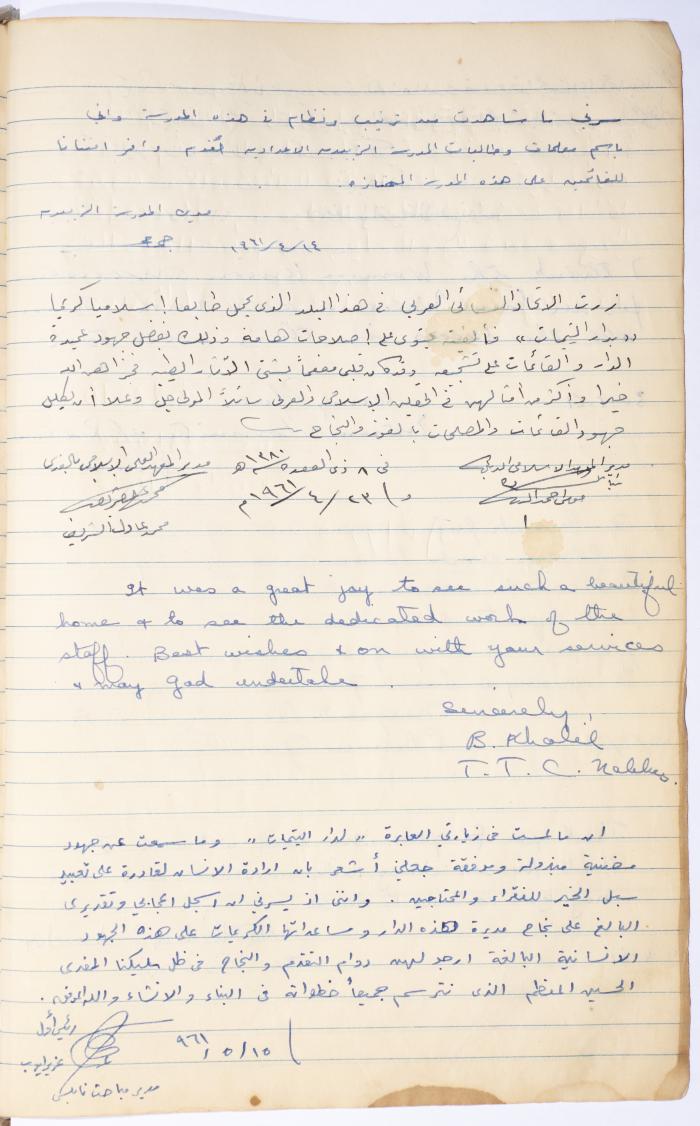 سرني ما شاهدت من ترتيب ونظام في هذه المدرسة واني
باسم معلمات وطالبات المدرسة الاعدادية اقدم وافر امتناننا
للقائمين على هذه المدرسة الممتازة.
مديرة المدرسة
١٩٦١/٤/١٤
زرت الاتحاد النسائي العربي في هذا البلد الذي يحمل طابعا إسلاميا كريما
«دار اليتيمات» فألفيته يحتوي على إصلاحات هامة وذلك بفضل جهود عميدة
الدار والقائمات على وقد كان قلبي مفعماً بشتى فجزاهن الله
خيرا وأكثر من أمثالهن في الحقلين الإسلامي والعربي سائلاً المولى جل وعلا أن يكلل
جهود القائمات والمصلحات بالفوز والنجاح
في ٨ ذي القعدة سنة ١٣٨٠هـ
مدير المعهد العلمي الإسلامي
و ٢٣/٤/١٩٦١م
محمد عادل الشريف
It was a great joy to see such a beautiful
home & to see the dedicated work of the
staff. Best wishes & on with your services
& may God undertake.
Sincerely,
B. Khalil
T. T. C. Nablus.
ان ما لمست في زيارتي العابرة «لدار اليتيمات» وما سمعت عن جهود
مضنية مبذولة وموفقة جعلني أشعر بان ارادة الانسان لقادرة على تعبيد
سبل الخير للفقراء والمحتاجين. وانني اذ يسرني ان اسجل اعجابي وتقديري
البالغ على نجاح مديرة هذه الدار ومساعداتها الكريمات على هذه الجهود
الانسانية البالغة ارجو لهن دوام التقدم والنجاح في ظل مليكنا المفدى
الحسين المعظم الذي نترسم جميعاً خطواته في البناء والانشاء والله الموفق.
رئيس أول
٩٦١/٥/١٥
مدير مباحث نابلس